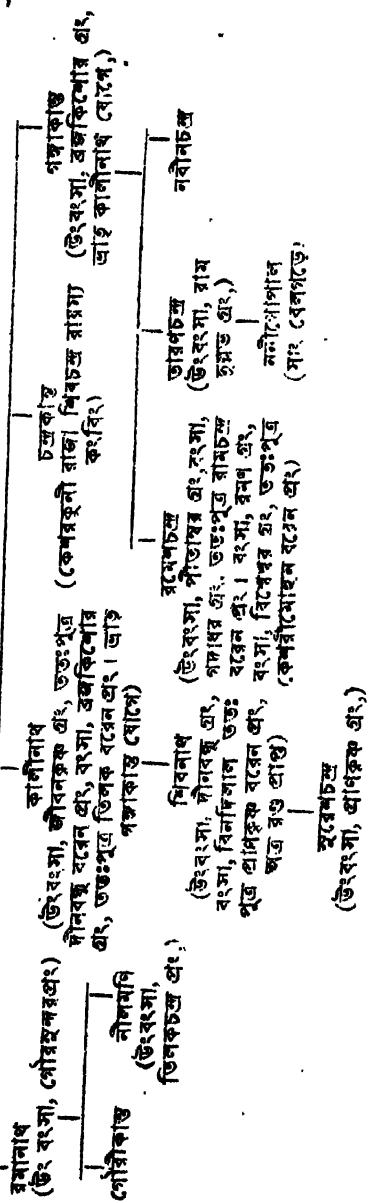 রমানাথ
(উং বংসা, গৌরসুন্দরগ্রং)
গৌরীকান্ত
নীলমণি
(উংবংসা,
তিলকচন্দ্র গ্রং,)
কালীনাথ
(উংবংসা, জীবনকৃষ্ণ গ্রং, ততঃপুত্র
দীনবন্ধু বরেন গ্রং, বংসা, ব্রজকিশোর
গ্রং, ততঃপুত্র তিলক বরেন গ্রং। ভ্রাতৃ
গঙ্গাকান্ত যোগে)
শিবনাথ
(উংবংসা, দীনবন্ধু গ্রং,
বংসা, বিনদিলাল ততঃ
পুত্র প্রাণকৃষ্ণ বরেন গ্রং,
অত্র রণ্ড প্রাপ্ত)
সুরেশচন্দ্র
(উংবংসা, প্রাণকৃষ্ণ গ্রং,)
চন্দ্রকান্ত
(কেশরকুনী রাজা শিবচন্দ্র রায়স্য
কংবিং)
গঙ্গাকান্ত
(উংবংসা, ব্রজকিশোর গ্রং,
ভ্রাতৃ কালীনাথ যোগে,)
রমেশচন্দ্র
(উংবংসা, পীতাম্বর গ্রং, বংসা,
গদাধর গ্রং, ততঃপুত্র রামচন্দ্র
বরেন গ্রং। বংসা, রমণ গ্রং,
বংসা, বিশ্বেশ্বর গ্রং, ততঃপুত্র
কেশরীমোহন বরেন গ্রং)
তারণচন্দ্র
(উংবংসা, রাম
দুর্লভ গ্রং,)
ননীগোপাল
(সাং বেলগড়ে)
নবীনচন্দ্র